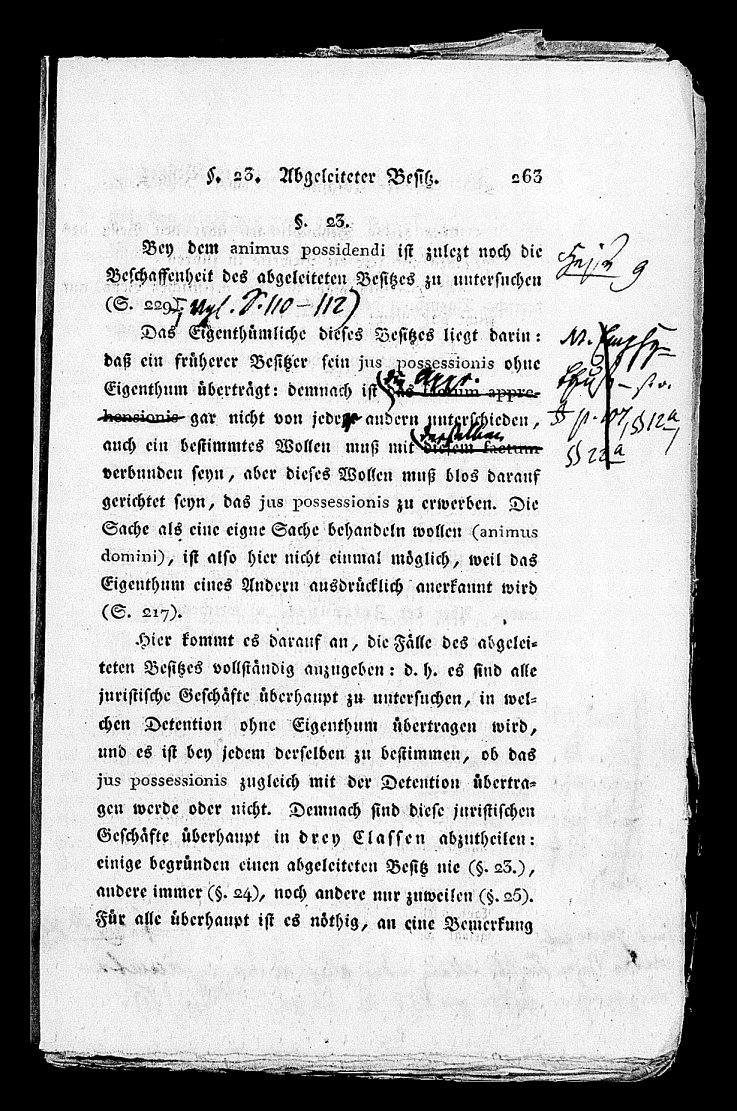 §. 23. Abgeleiteter Besitz. 263
§. 23.
Bey dem animus possidendi ist zulezt noch die
Beschaffenheit des abgeleiteten Besitzes zu untersuchen
(S. 229, vgl. S. 110–112)
Das Eigenthümliche dieses Besitzes liegt darin:
daß ein früherer Besitzer sein jus possessionis ohne
Eigenthum überträgt: demnach ist das factum appre-
hensionis gar nicht von jeder andern unterschieden,
auch ein bestimmtes Wollen muß mit derselben diesem factum
verbunden seyn, aber dieses Wollen muß blos darauf
gerichtet seyn, das jus possessionis zu erwerben. Die
Sache als eine eigne Sache behandeln wollen (animus
domini), ist also hier nicht einmal möglich, weil das
Eigenthum eines Andern ausdrücklich anerkannt wird
(S. 217).
Hier kommt es darauf an, die Fälle des abgelei-
teten Besitzes vollständig anzugeben: d. h. es sind alle
juristische Geschäfte überhaupt zu untersuchen, in wel-
chen Detention ohne Eigenthum übertragen wird,
und es ist bey jedem derselben zu bestimmen, ob das
jus possessionis zugleich mit der Detention übertra-
gen werde oder nicht. Demnach sind diese juristischen
Geschäfte überhaupt in drey Classen abzutheilen:
einige begründen einen abgeleiteten Besitz nie (§. 23.),
andere immer (§. 24), noch andere nur zuweilen (§. 25).
Für alle überhaupt ist es nöthig, an eine Bemerkung
9
107, §§ 12a
§§ 22a